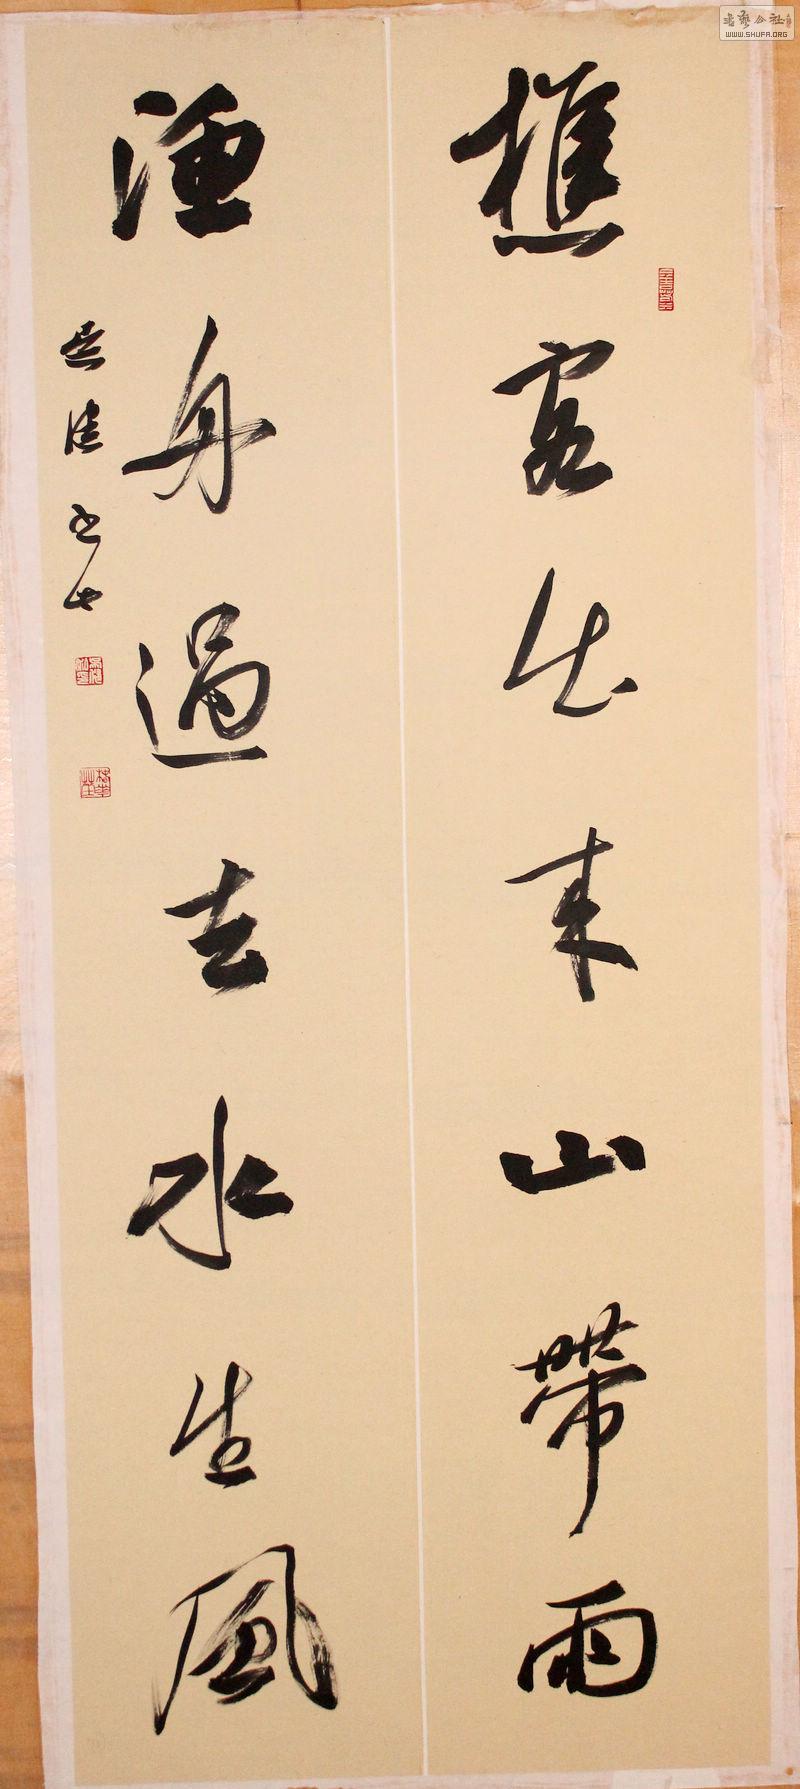 樵客出來山帶雨
漁舟過去水生風
書藝公社
WWW.SHUFA.ORG